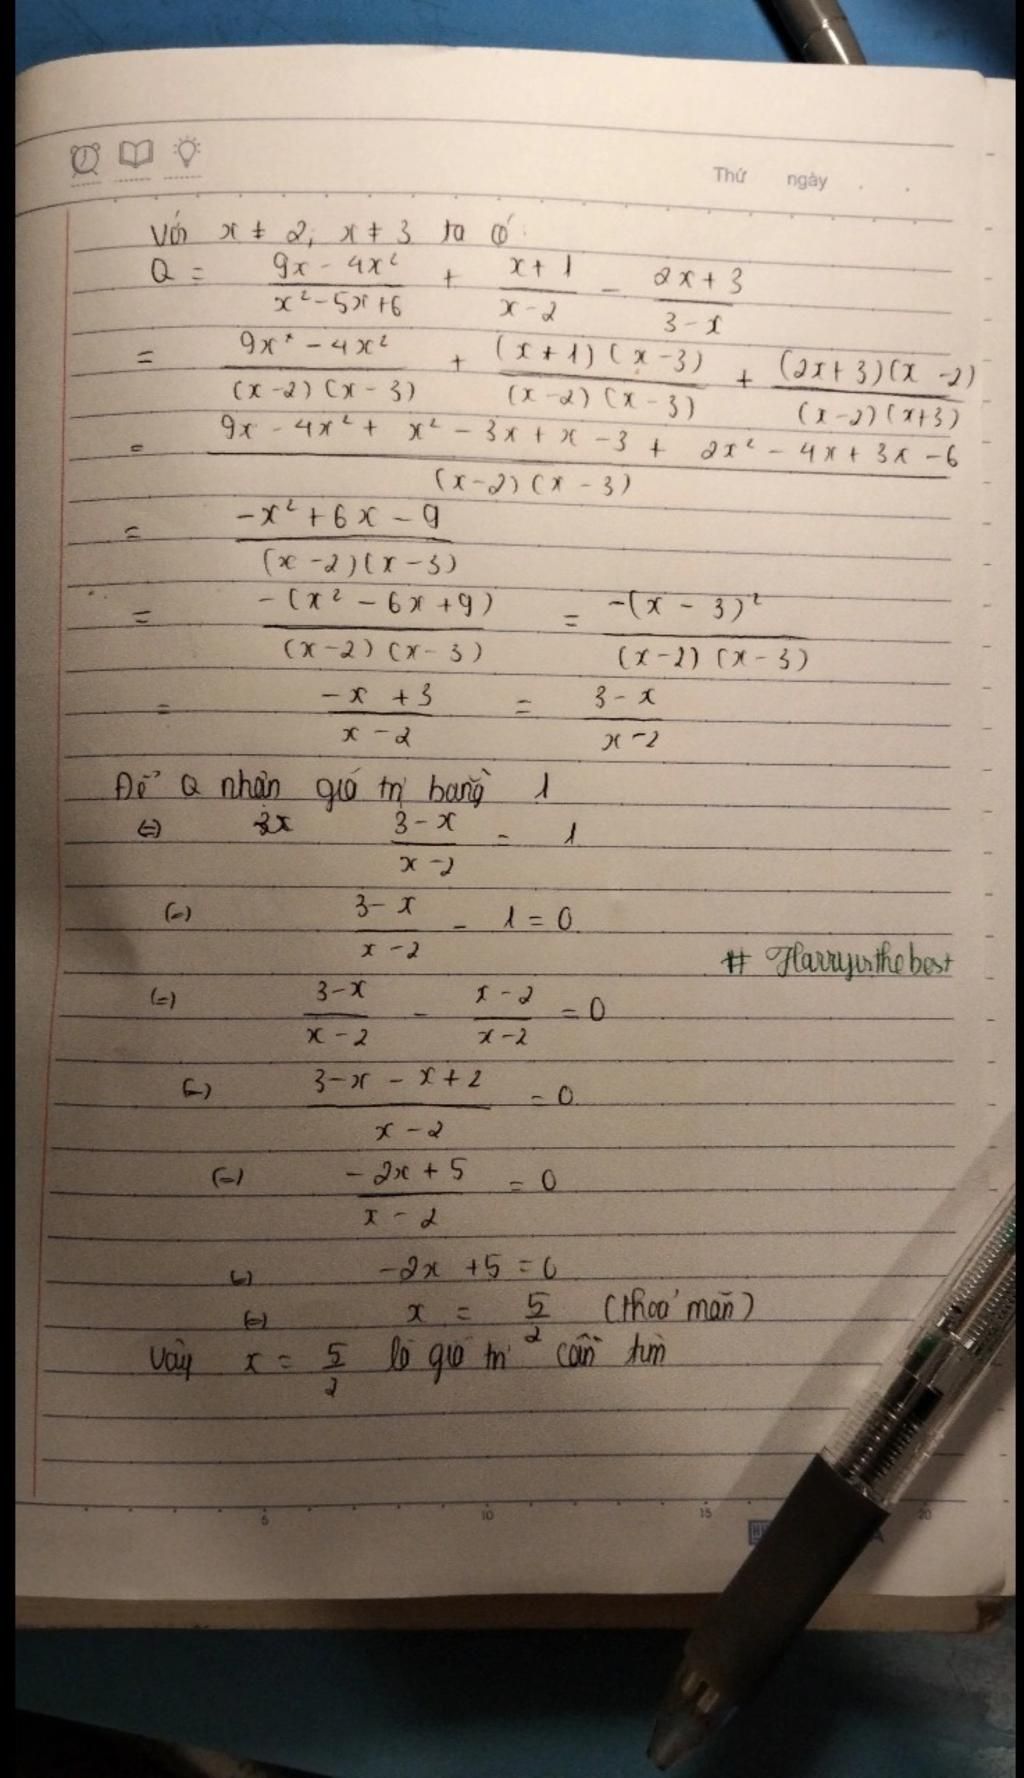 Thứ ngày
Với x ≠ 2; x ≠ 3 ta có:
Q = (9x - 4x²)/(x² - 5x + 6) + (x + 1)/(x - 2) - (2x + 3)/(3 - x)
= (9x - 4x²)/((x - 2)(x - 3)) + ((x + 1)(x - 3))/((x - 2)(x - 3)) + ((2x + 3)(x - 2))/((x - 2)(x + 3))
= (9x - 4x² + x² - 3x + x - 3 + 2x² - 4x + 3x - 6)/((x - 2)(x - 3))
= (-x² + 6x - 9)/((x - 2)(x - 3))
= (-(x² - 6x + 9))/((x - 2)(x - 3)) = (-(x - 3)²)/((x - 2)(x - 3))
= (-x + 3)/(x - 2) = (3 - x)/(x - 2)
Để Q nhận giá trị bằng 1
(=) (3 - x)/(x - 2) = 1
(=) (3 - x)/(x - 2) - 1 = 0
# Harryisthebest
(=) (3 - x)/(x - 2) - (x - 2)/(x - 2) = 0
(=) (3 - x - x + 2)/(x - 2) = 0
(=) (-2x + 5)/(x - 2) = 0
(=) -2x + 5 = 0
(=) x = 5/2 (thoả mãn)
Vậy x = 5/2 là giá trị cần tìm
5 10 15 20